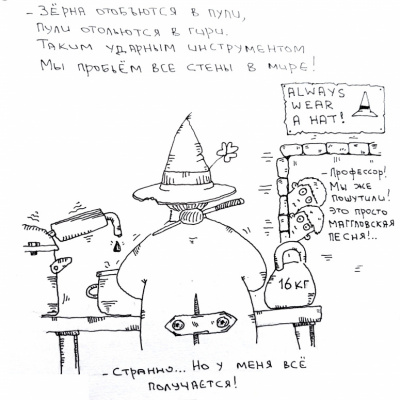 - ЗЁРНА ОТОБЬЮТСЯ В ПУЛИ,
ПУЛИ ОТОЛЬЮТСЯ В ГИРИ.
ТАКИМ УДАРНЫМ ИНСТРУМЕНТОМ
МЫ ПРОБЬЁМ ВСЕ СТЕНЫ В МИРЕ!
ALWAYS
WEAR
A HAT!
- ПРОФЕССОР!
МЫ ЖЕ
ПОШУТИЛИ!
ЭТО ПРОСТО
МАГГЛОВСКАЯ
ПЕСНЯ!..
16 КГ
- СТРАННО... НО У МЕНЯ ВСЁ
ПОЛУЧАЕТСЯ!